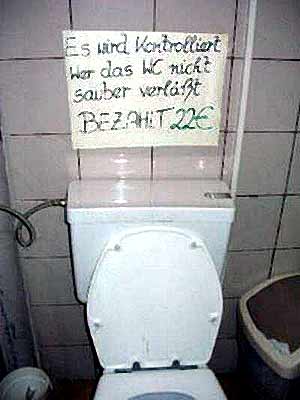 Es wird Kontrolliert
Wer das WC nicht
sauber verläßt
BEZAHLT 22€